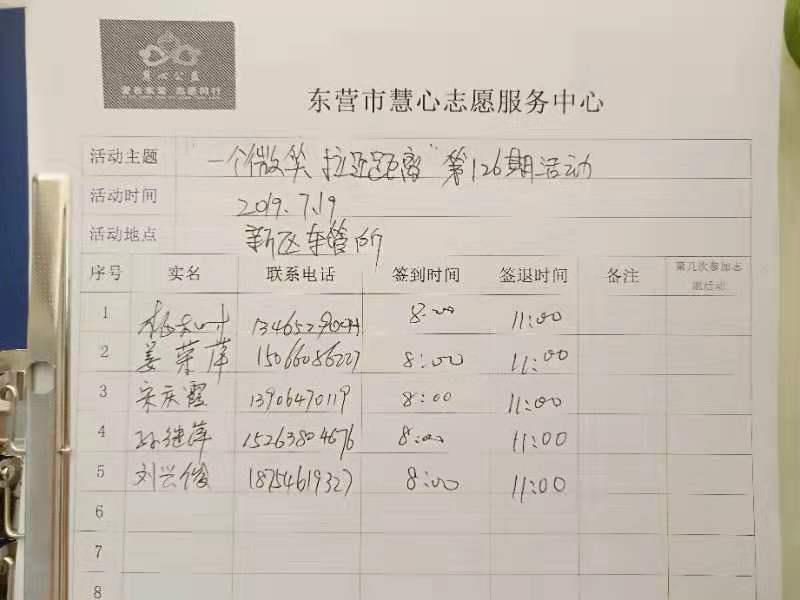 慧心公益
东营市慧心志愿服务中心
活动主题 一个微笑 拉近距离"第126期活动
活动时间 2019.7.19
活动地点 新区车管所
序号 实名 联系电话 签到时间 签退时间 备注 第几次参加志愿活动
1 8:00 11:00
2 姜荣萍 15066086227 8:00 11:00
3 宋庆霞 13906470119 8:00 11:00
4 孙继萍 15263804676 8:00 11:00
5 刘兴俊 18754619327 8:00 11:00
6
7
8